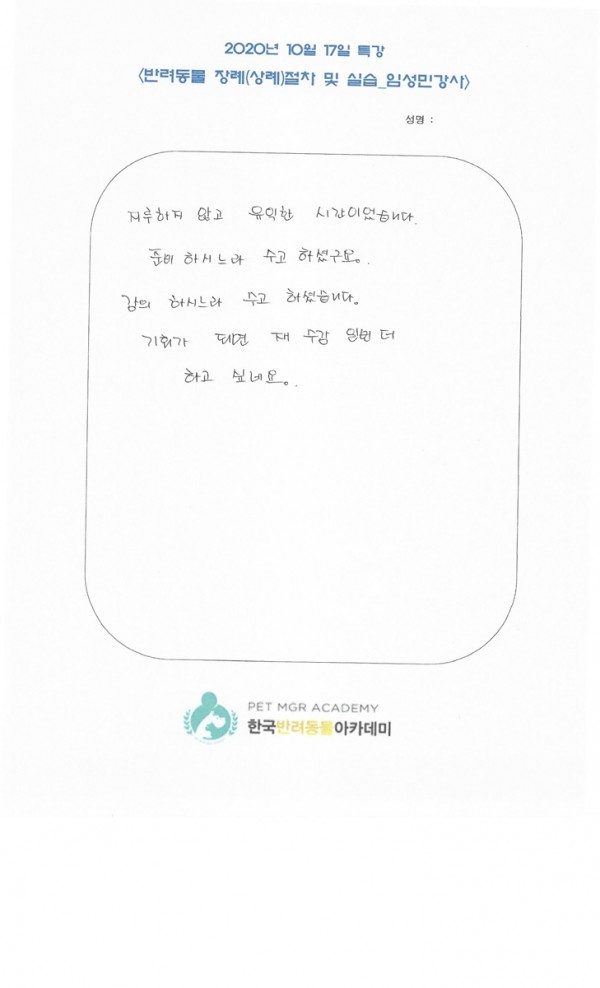 2020년 10월 17일 특강
<반려동물 장례(상례)절차 및 실습_임성민강사>
성명 :
지루하지 않고 유익한 시간이었습니다.
준비 하시느라 수고 하셨구요.
강의 하시느라 수고 하셨습니다.
기회가 되면 재 수강 한번 더
하고 싶네요.
PET MGR ACADEMY
한국반려동물아카데미